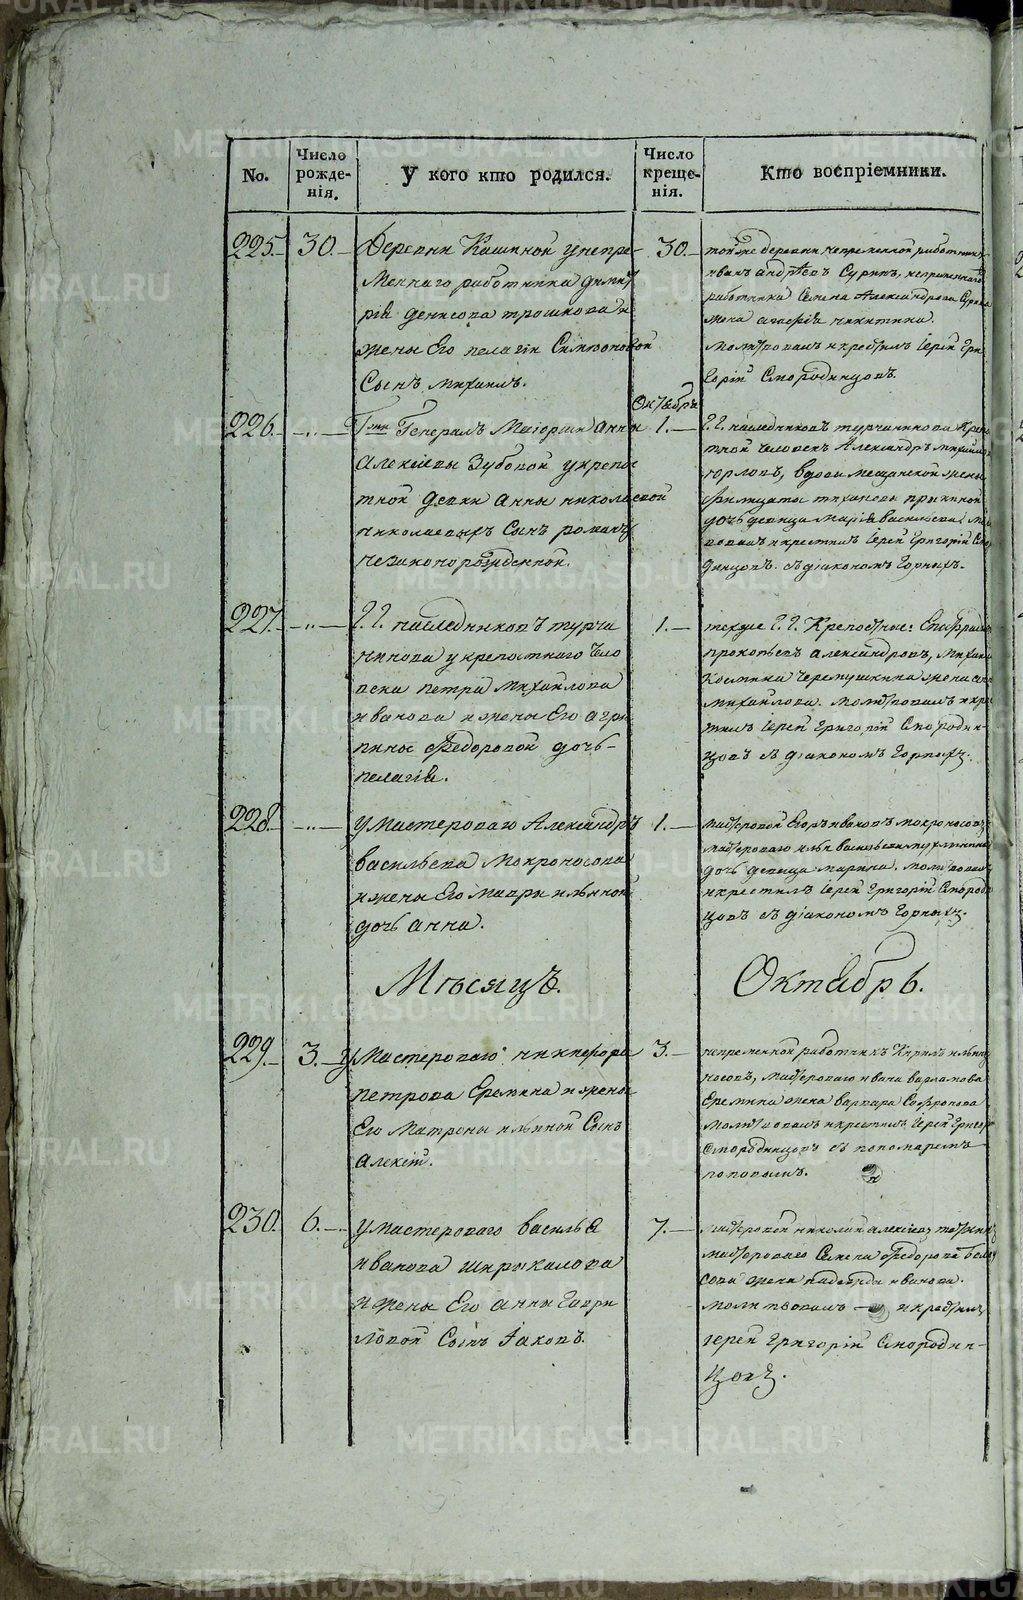 No.
Число рожде-нія.
У кого кто родился.
Число креще-нія.
Кто воспріемники.
225.
30.
Деревни Кашиной у непре-
меннаго работника Димит
рія Денисова Трошкова и
жены Его Пелагіи Симеоновой
Сынъ Михаилъ.
30.
тойже деревни непременной работникъ
Иванъ Андрѣевъ Суринъ, непременнаго
работника Семена Александрова Сурина
жена Агафія Никитина.
Молитвовалъ и крестилъ Іерей Гри
горій Смородинцовъ.
Октября
226.
Гжи Генералъ Маіорши Анны
Алексіевы Зубовой у крепос
тной девки Анны Николаевой
Николаевыхъ Сынъ Романъ
незаконорожденной.
1.
Г.Г. наследниковъ Турчанинова Крепос
тной человекъ Александръ Михайлов
Юрловъ, вдовы мещанской жены
дочь девица Марія Васильева. Мол
вовалъ и крестилъ Іерей Григорій Смо
динцовъ. съ діакономъ Горныхъ.
227.
Г.Г. наследниковъ Турча
нинова у крепостнаго Чело
века Петра Михайлова
Иванова и жены Его Агри
пины Федоровой дочь
Пелагія.
1.
техже Г.Г. Крепостные:
Прокопьевъ Александровъ, Михаила
Космина Черемушкина жена
Михайлова. Молитвовалъ и кре
тилъ Іерей Григорій Смородин-
цовъ съ діакономъ Горныхъ.
228.
у Мастероваго Александръ
Васильева Мокроносова
и жены Его Мавры Ильиной
дочь Анна.
1.
Мастеровой Егоръ Ивановъ Мокроносовъ
мастероваго Ильи Васильева
дочь девица Марина. Молитвовалъ
и крестилъ Іерей Григорій Смороди
цовъ съ діакономъ Горныхъ.
Мѣсяцъ.
Октябрь.
229.
3.
у Мастероваго Никифора
Петрова Еремина и жены
Его Матроны Ильиной Сынъ
Алексій.
3.
непременной работникъ Кирилъ Ильинъ
носовъ, мастероваго Ивана Варламова
Еремина жена Варвара Софронова
Молитвовалъ и крестилъ Іерей Григор
Смородинцовъ съ пономаремъ
Поповымъ.
230.
6.
у мастероваго Василья
Иванова Ширыкалова
и жены Его Анны Гаври
ловой Сынъ Іаковъ.
7.
мастеровой Николай Алексіевъ
мастероваго Семена Федорова Бело
сова жена Надежда Иванова.
Молитвовалъ — и крестилъ
Іерей Григорій Смородин-
цовъ.